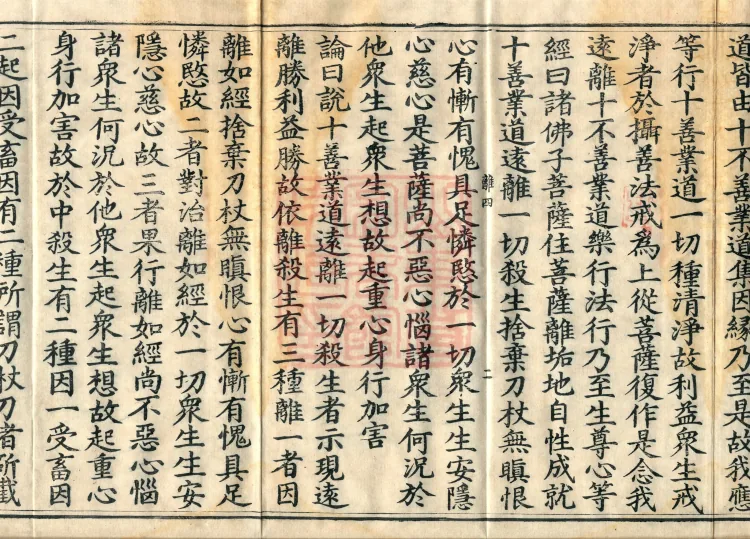 道皆由十不善業道集因緣乃至是故我應
等行十善業道一切種清淨故利益衆生戒
淨者於攝善法戒爲上從菩薩復作是念我
遠離十不善業道樂行法行乃至生尊心等
經曰諸佛子菩薩住菩薩離垢地自性成就
十善業道遠離一切殺生捨棄刀杖無瞋恨
離四
二
心有慚有愧具足憐愍於一切衆生生安隱
心慈心是菩薩尚不惡心惱諸衆生何況於
他衆生起衆生想故起重心身行加害
論曰說十善業道遠離一切殺生者示現遠
離勝利益勝故依離殺生有三種離一者因
離如經捨棄刀杖無瞋恨心有慚有愧具足
憐愍故二者對治離如經於一切衆生生安
隱心慈心故三者果行離如經尚不惡心惱
諸衆生何況於他衆生起衆生想故起重心
身行加害故於中殺生有二種因一受畜因
二起因受畜因有二種所謂刀杖刀者所截